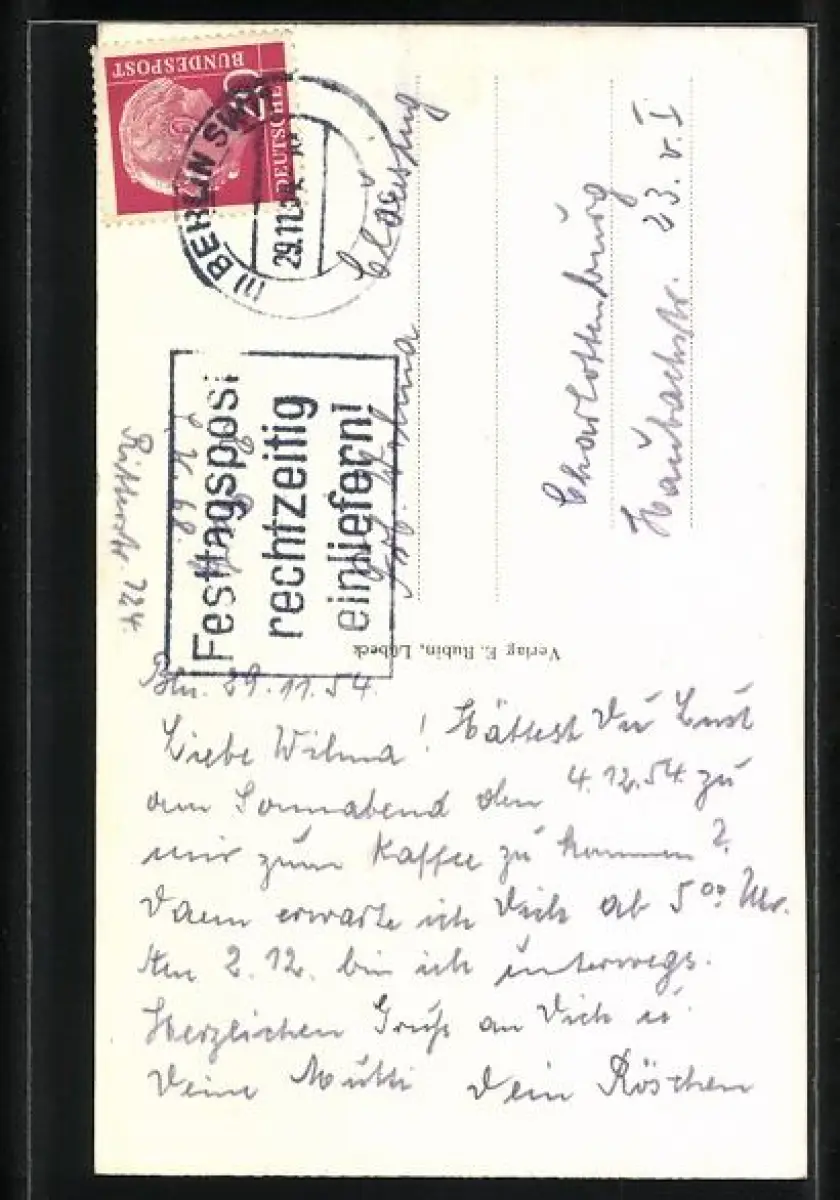 DEUTSCHE
BUNDESPOST
(1) BERLIN SW
29.11.54
Festtagspost
rechtzeitig
einliefern!
Ritterstr. 124.
Verlag E. Rubin, Lübeck
Charlottenburg
Haubachstr. 23. v. I
Bln. 29.11.54.
Liebe Wilma! Hättest Du Lust
am Sonnabend den 4.12.54. zu
mir zum Kaffee zu kommen?
Dann erwarte ich Dich ab 5 00 Uhr.
Am 2.12. bin ich unterwegs.
Herzlichen Gruß an Dich u
Deine Mutti Dein Röschen